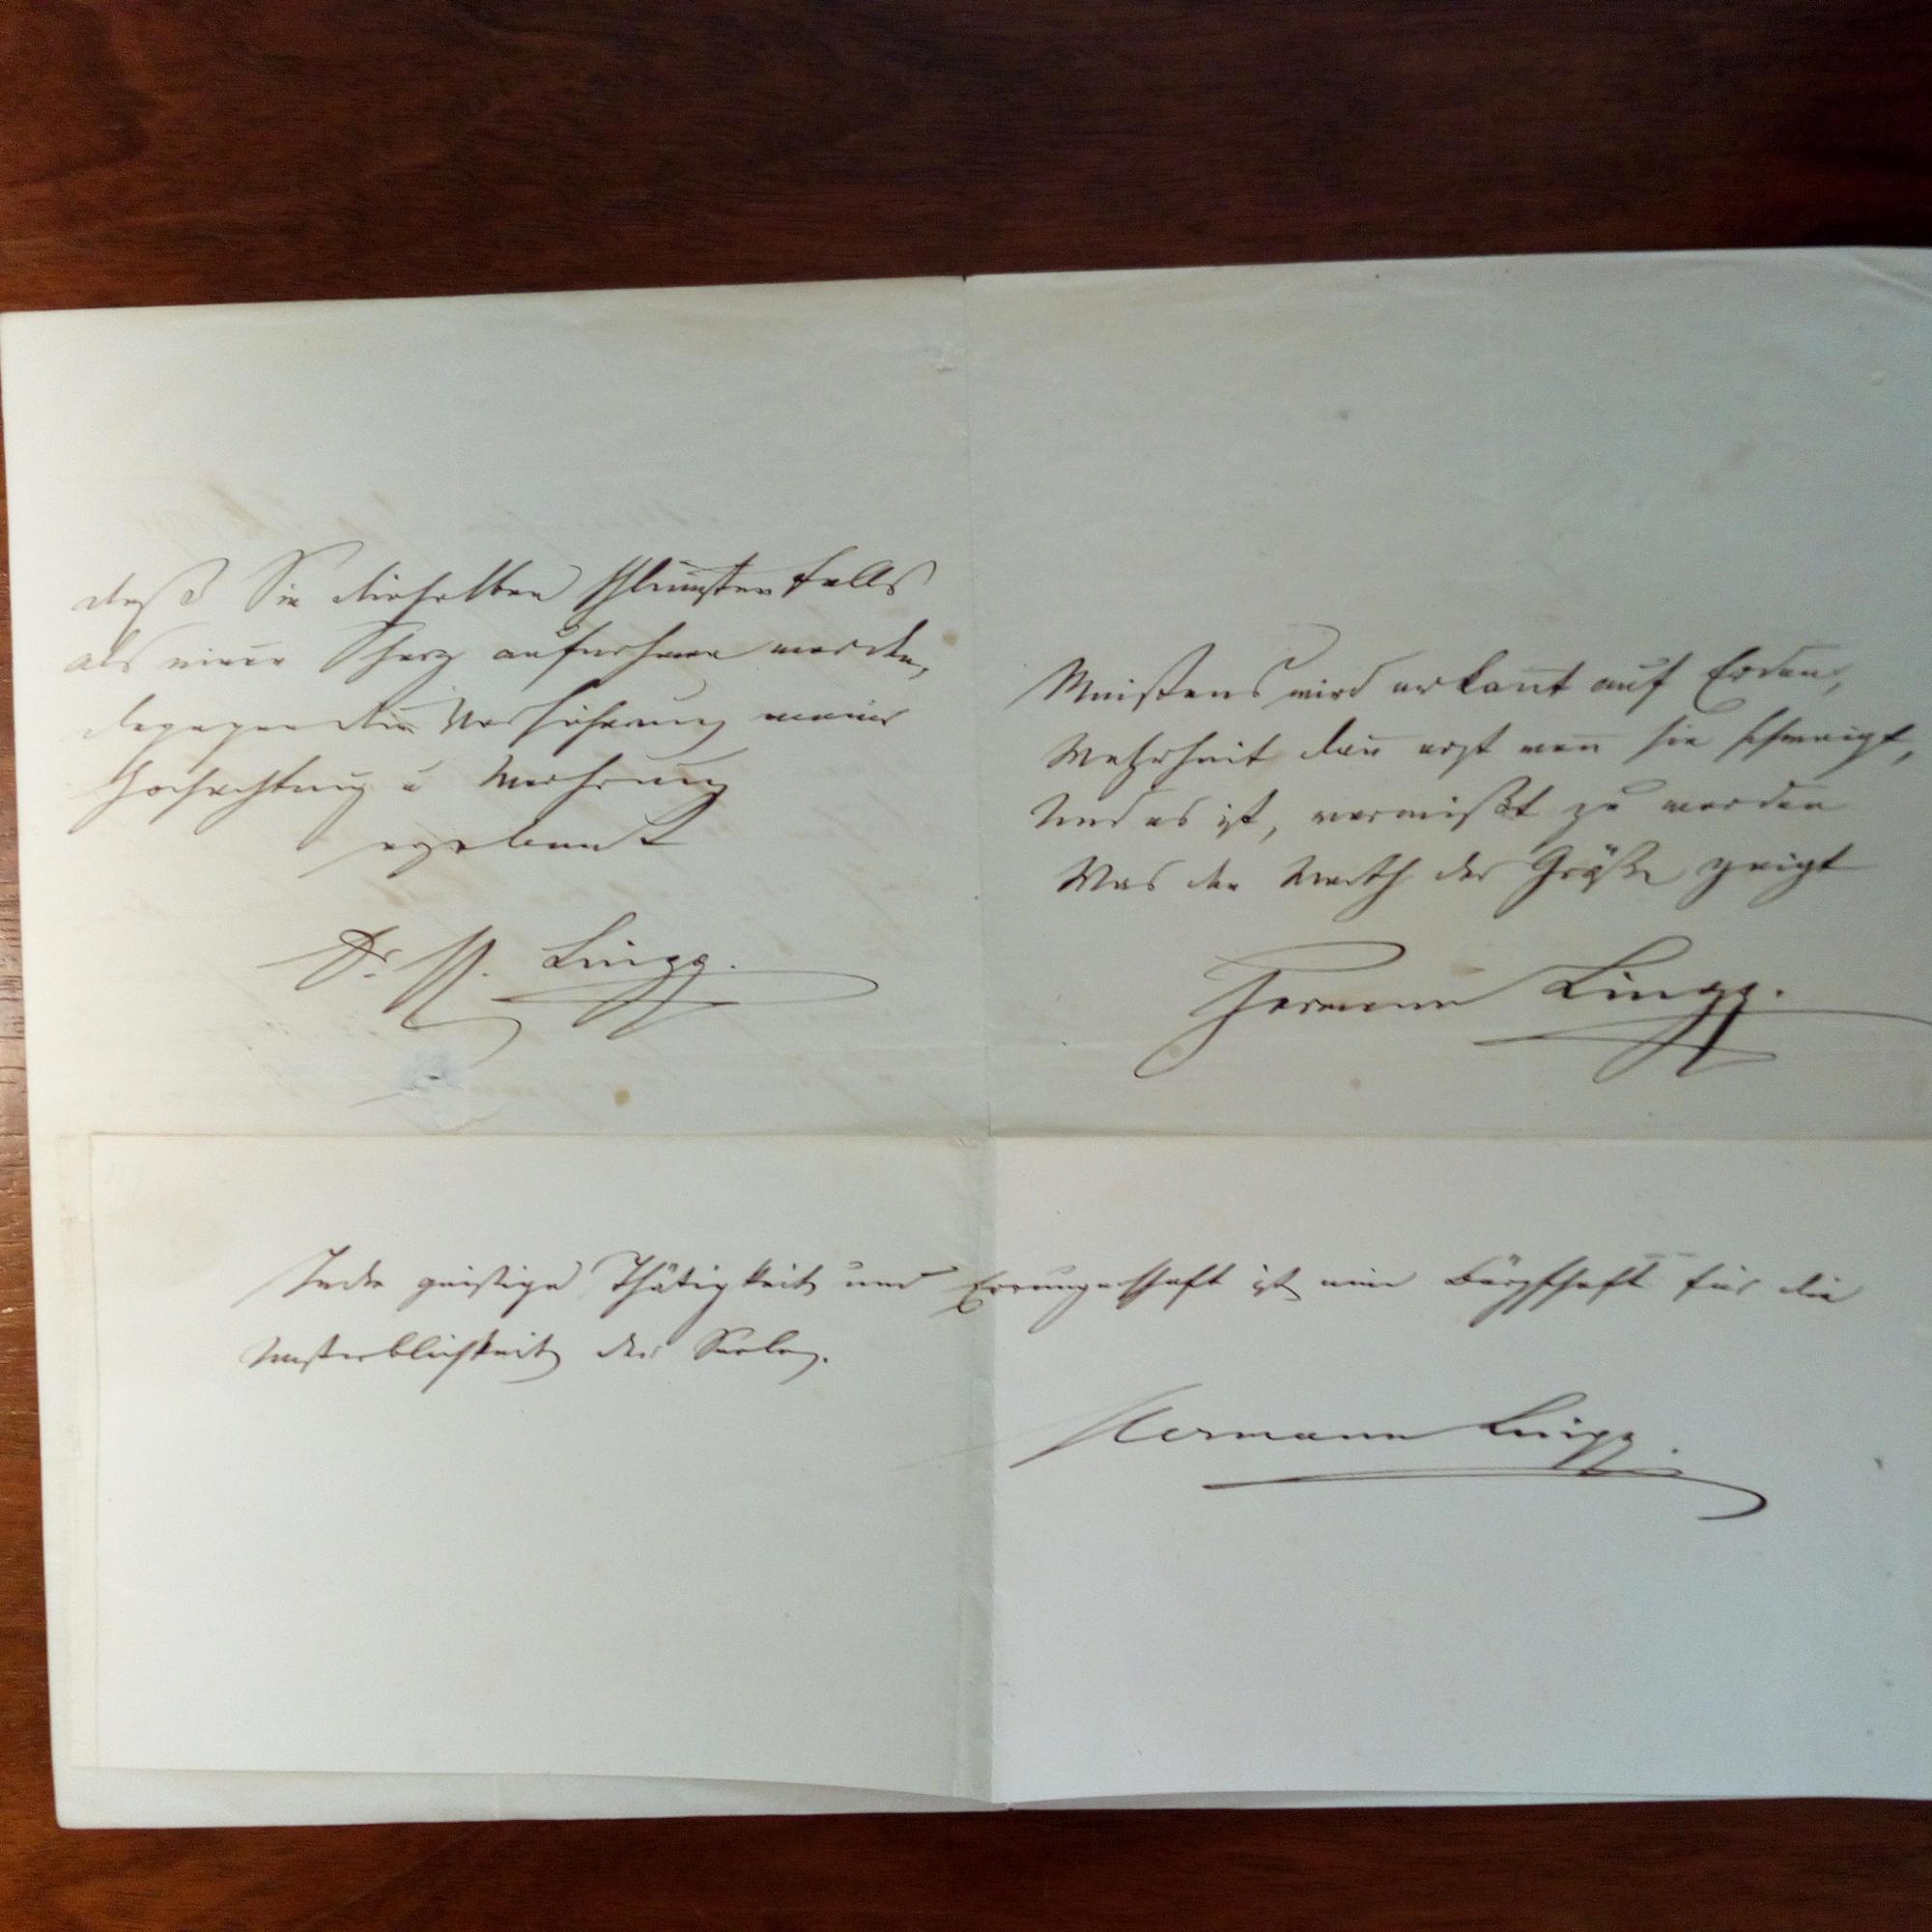 daß Sie dieselben schlimmsten Falls
als einen Scherz aufnehmen werden,
dagegen die Versicherung meiner
Hochachtung u Verehrung
ergebenst
Dr. H. Lingg.
Meistens wird erkannt auf Erden,
Wahrheit dann erst wenn sie schweigt,
Und es ist, vermißt zu werden
Was den Werth der Größe zeigt
Hermann Lingg.
Jede geistige Thätigkeit und Errungenschaft ist eine Bürgschaft für die
Unsterblichkeit der Seele.
Hermann Lingg.